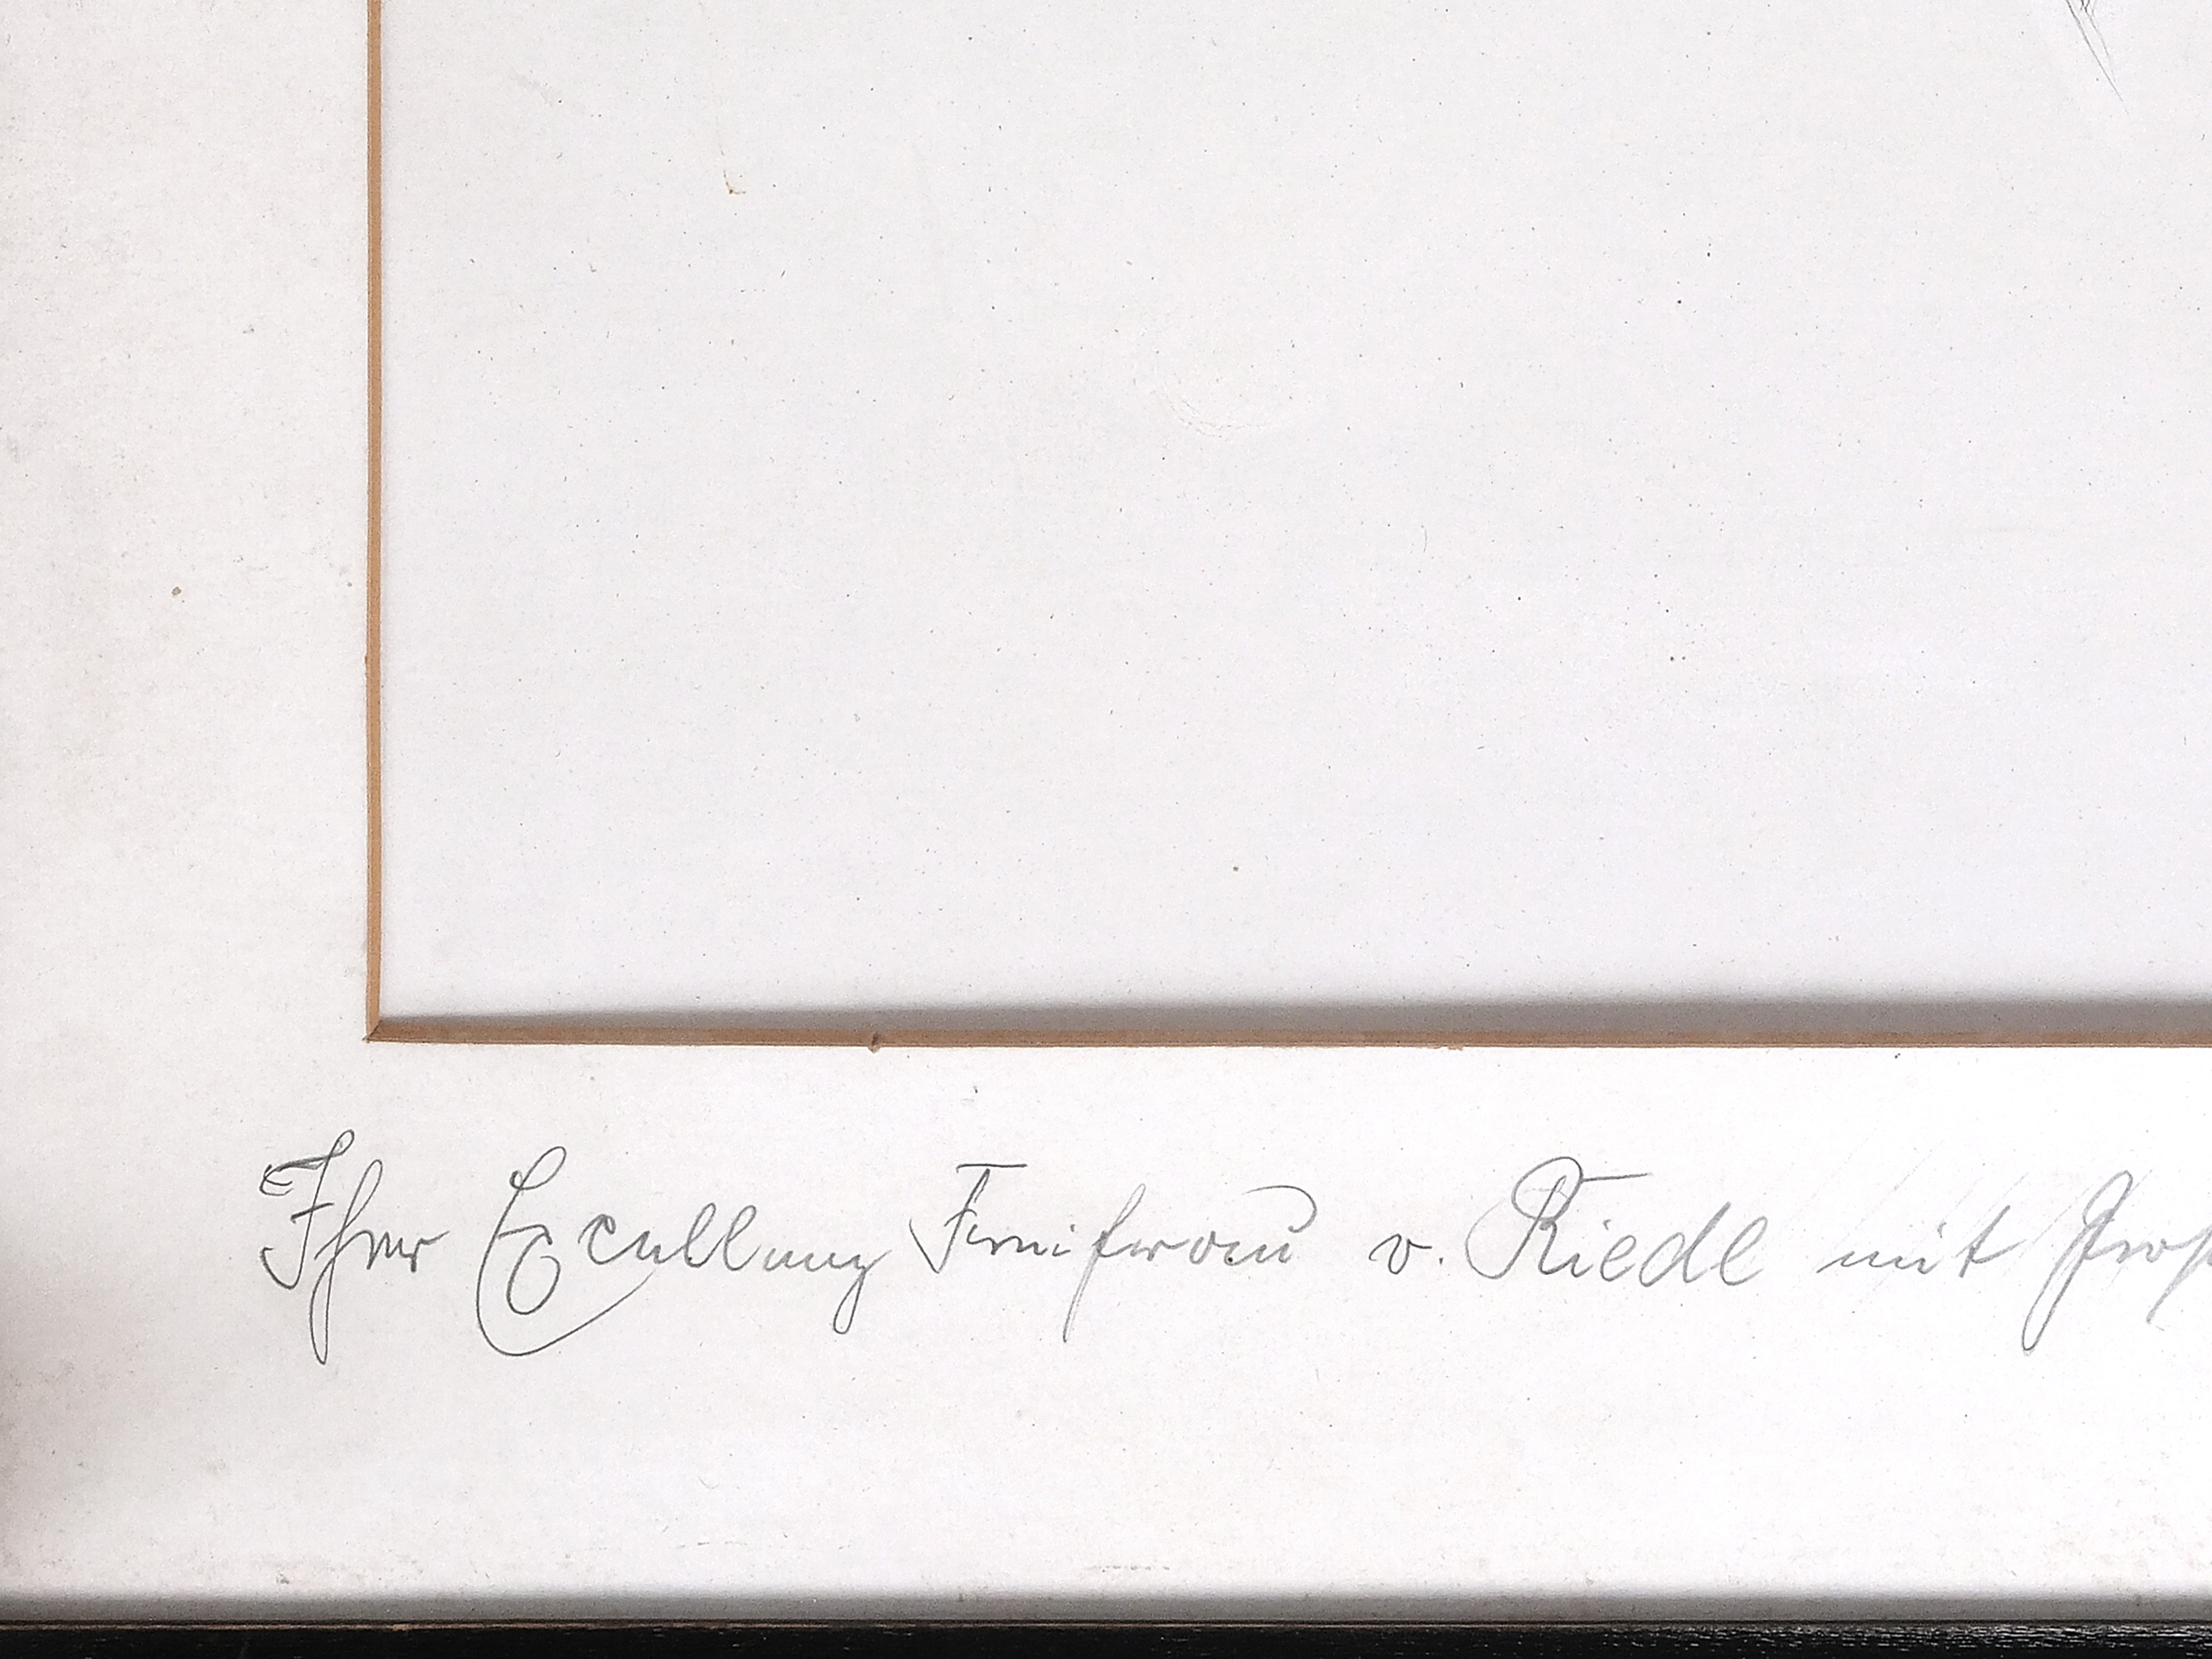 Ihrer Excellenz Freifrau v. Riedl mit